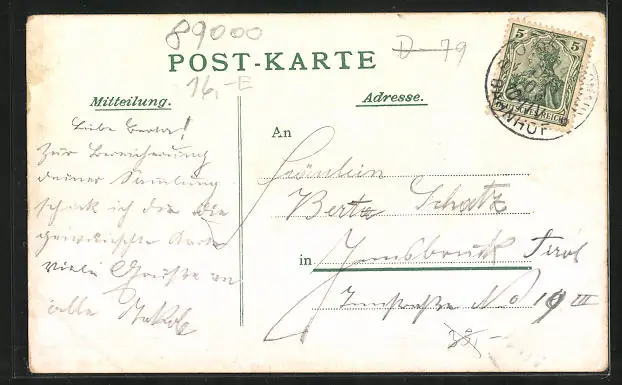 89000
D-79
POST-KARTE
16,-E
5 5
DEUTSCHES REICH
BAHNHOF
Mitteilung.
Adresse.
Liebe Berta!
Zur Bereicherung
deiner Sammlung
schick ich dir die
gewünschte Karte
Viele Grüße an
alle Jakob
An
Fräulein
Berta Schatz
in Innsbruck Tirol
Innstraße No 19 III